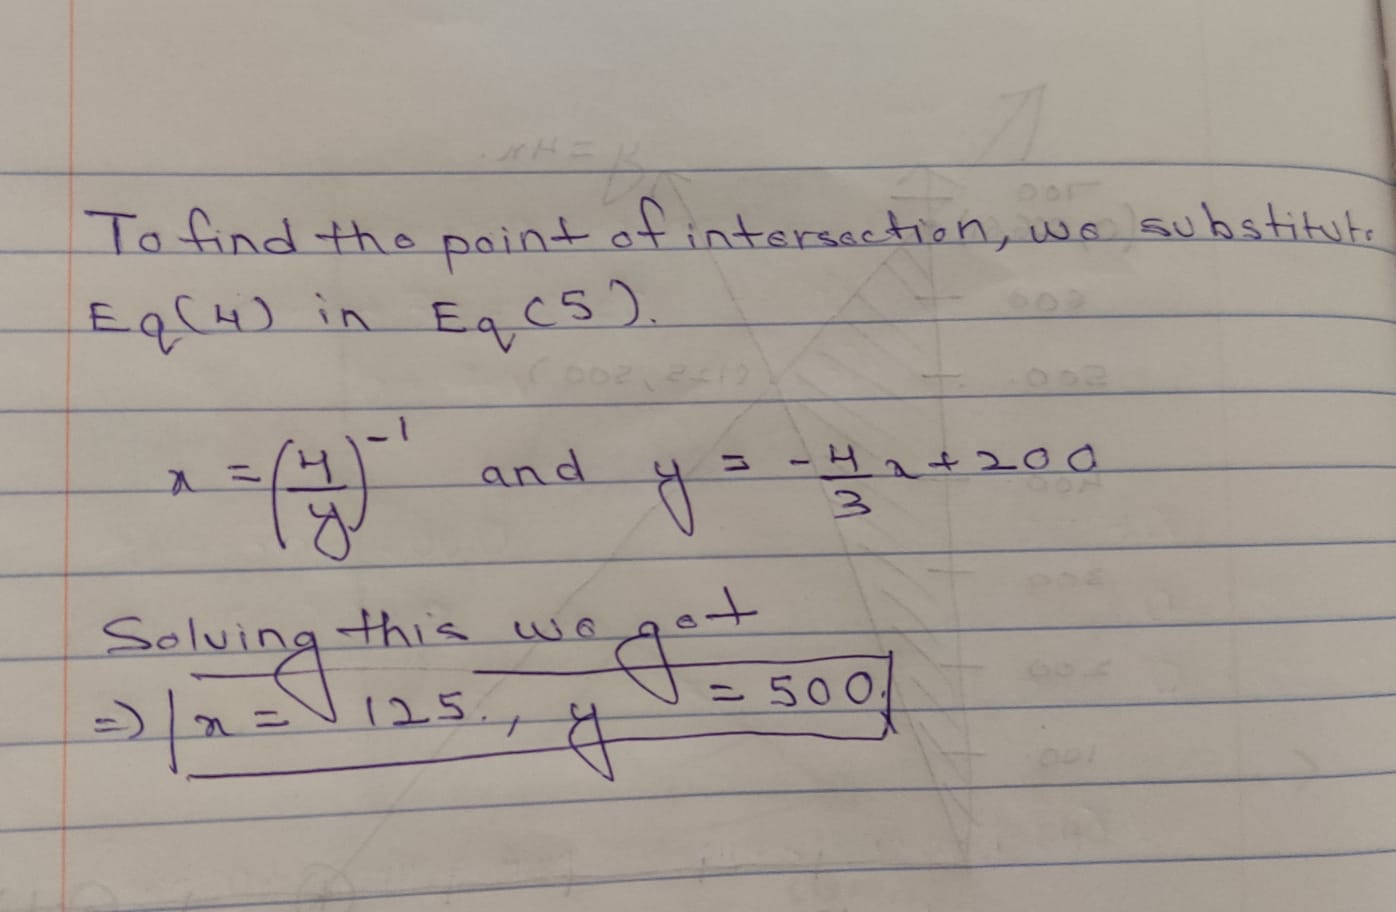 To find the point of intersection, we substitute
Eq(4) in Eq(5).
x = (4/y)^-1 and y = -4/3 x + 200
Solving this we get
=> x = 125., y = 500.